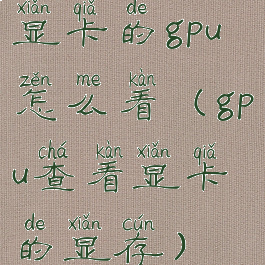 xiǎn qiǎ de
显卡的gpu
zěn me kàn
怎么看（gp
chá kàn xiǎn qiǎ
u查看显卡
de xiǎn cún
的显存）